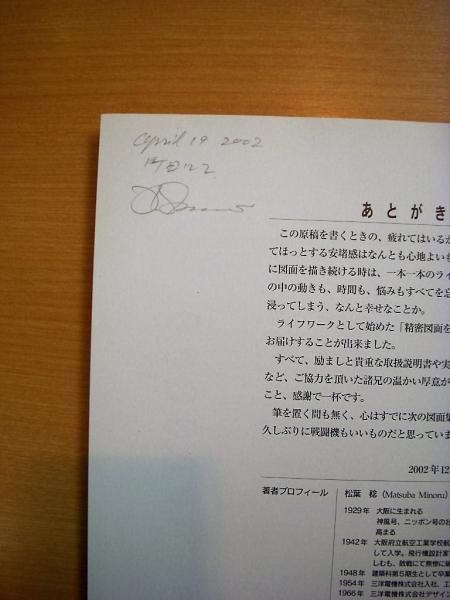 April 19 2002
町田にて
あとがき
この原稿を書くときの、疲れてはいるが
てほっとする安堵感はなんとも心地よい
に図面を描き続ける時は、一本一本のライ
の中の動きも、時間も、悩みもすべてを忘
浸ってしまう、なんと幸せなことか。
ライフワークとして始めた「精密図面を
お届けすることが出来ました。
すべて、励ましと貴重な取扱説明書や実
など、ご協力を頂いた諸兄の温かい厚意が
こと、感謝で一杯です。
筆を置く間も無く、心はすでに次の図面集
久しぶりに戦闘機もいいものだと思っていま
2002年12
著者プロフィール 松葉 稔(Matsuba Minoru)
1929年 大阪に生まれる
神風号、ニッポン号の壮
高まる
1942年 大阪府立航空工業学校航
して入学。飛行機設計家
しむも、敗戦にて無惨に破
1948年 建築科第5期生として卒業
1954年 三洋電機株式会社入社、工
1966年 三洋電機株式会社デザイン